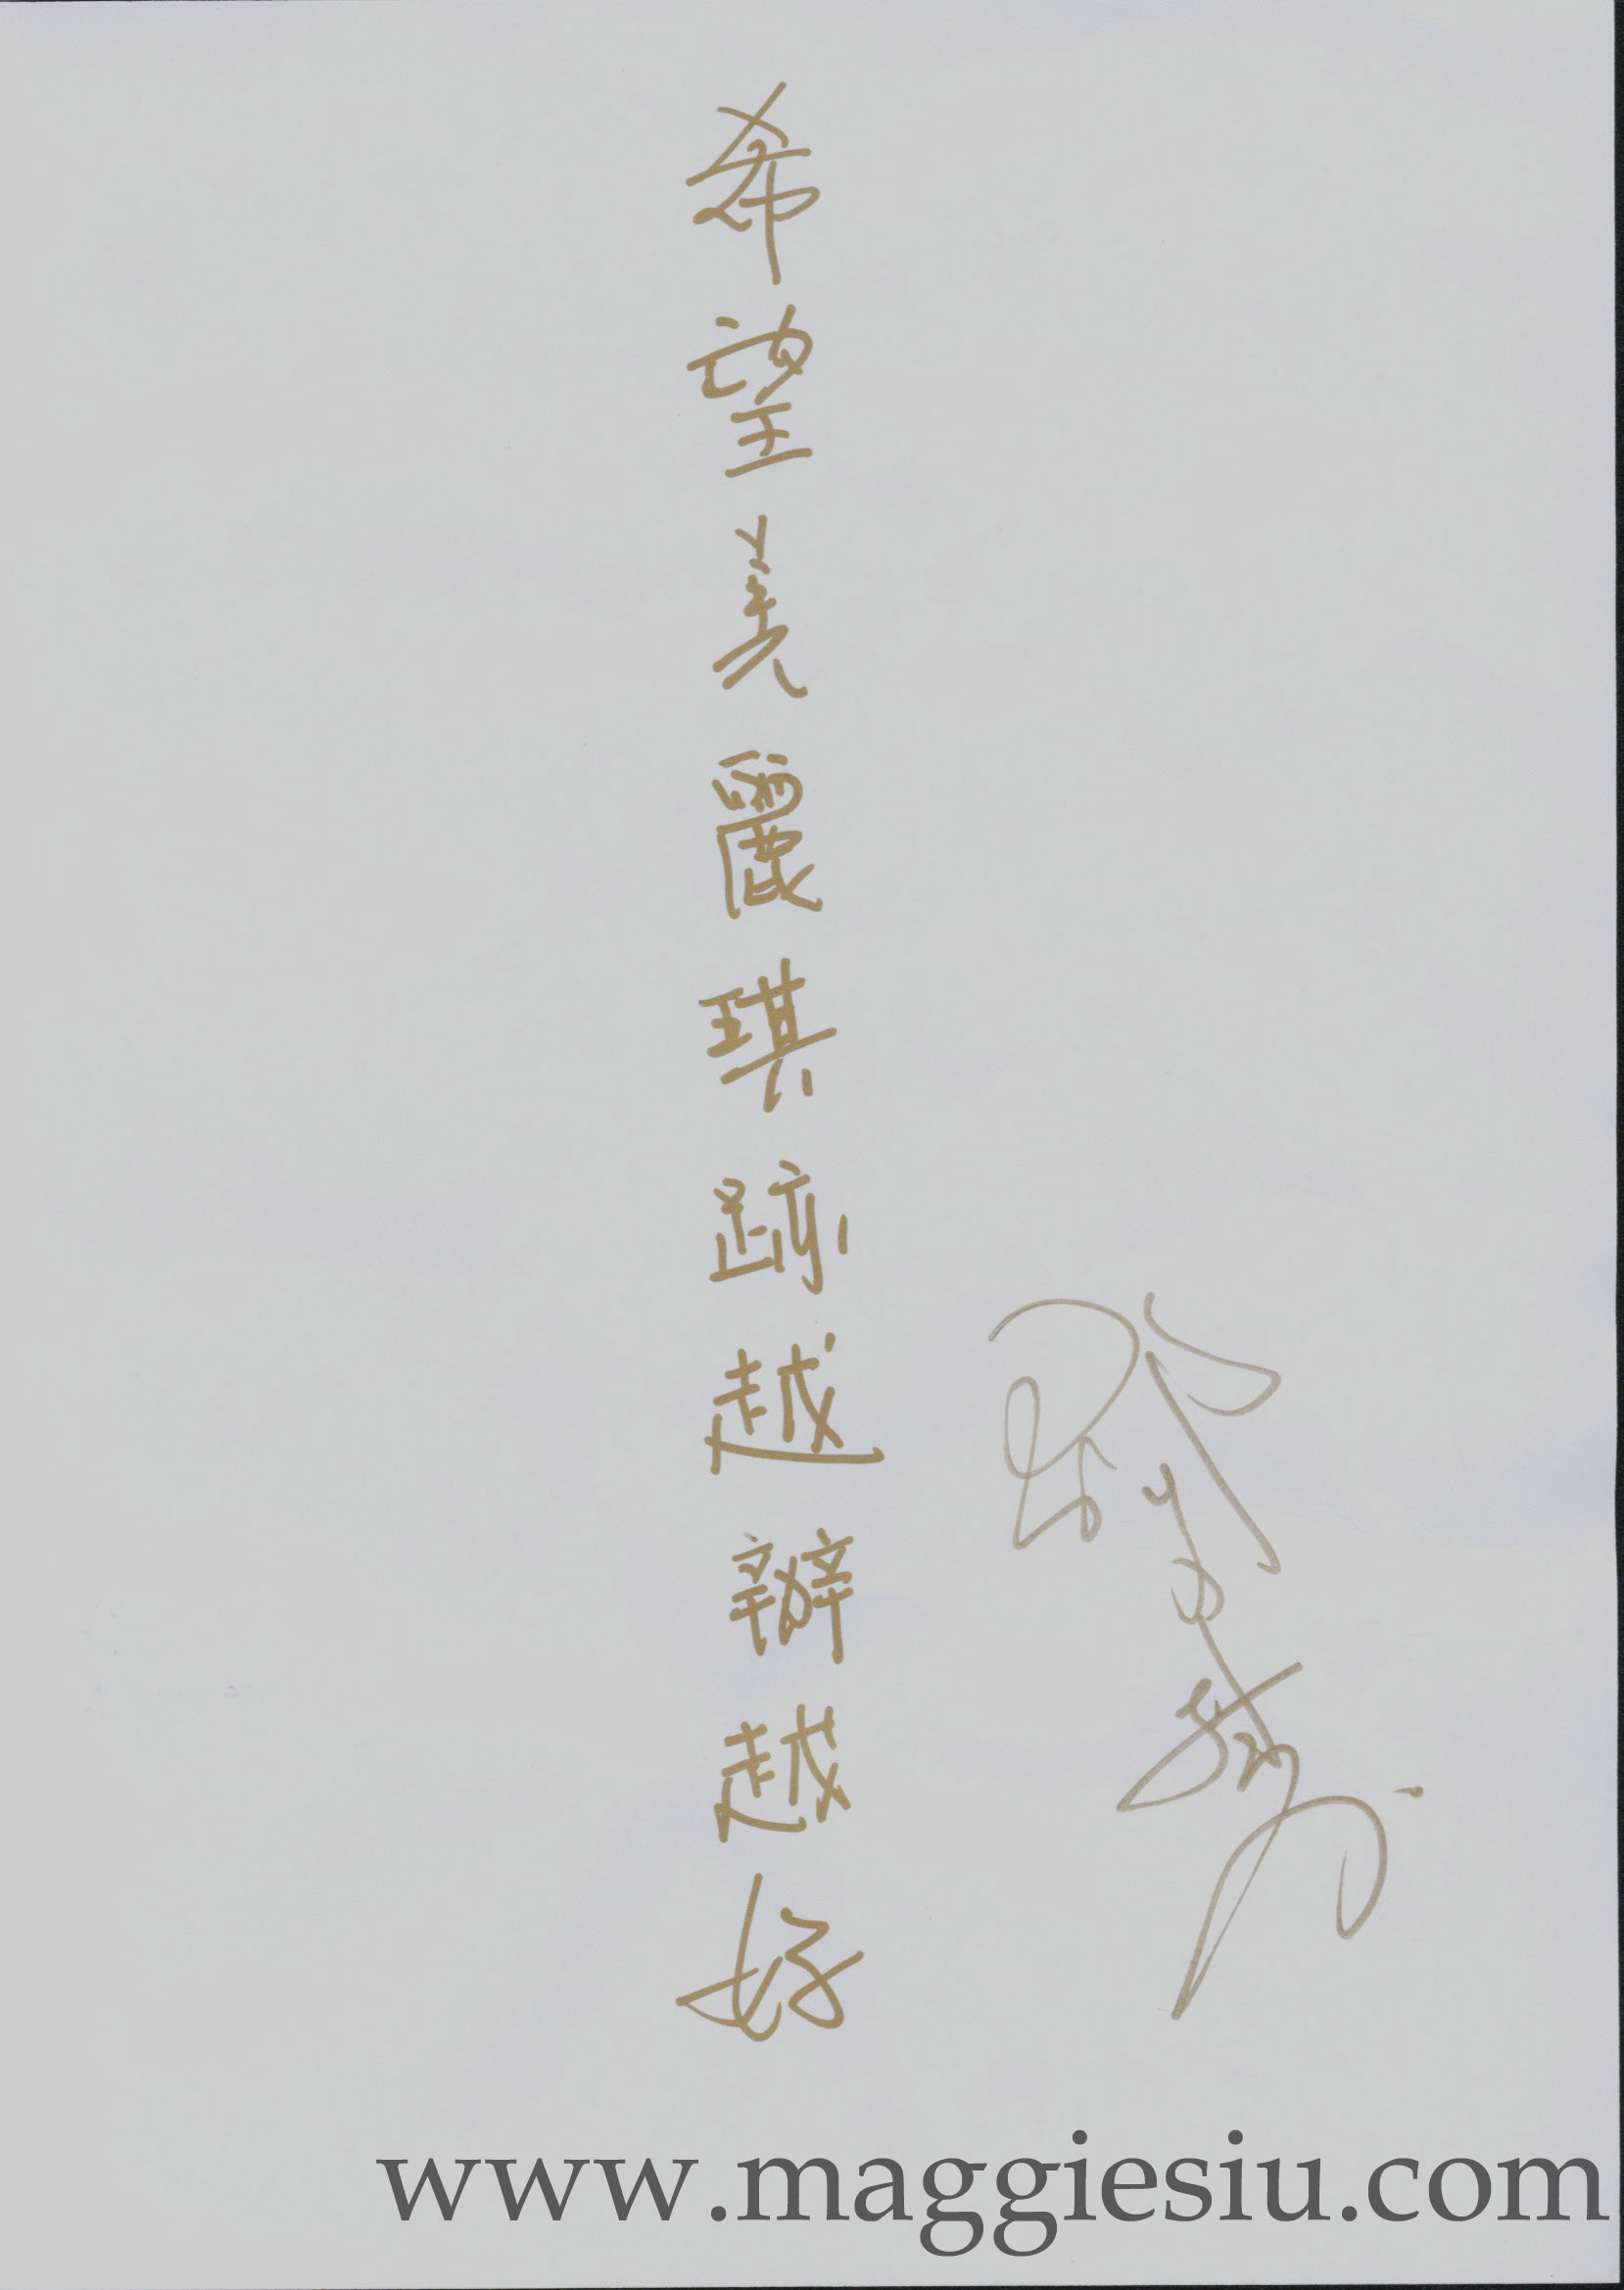 希望美麗琪跡越辦越好
www.maggiesiu.com